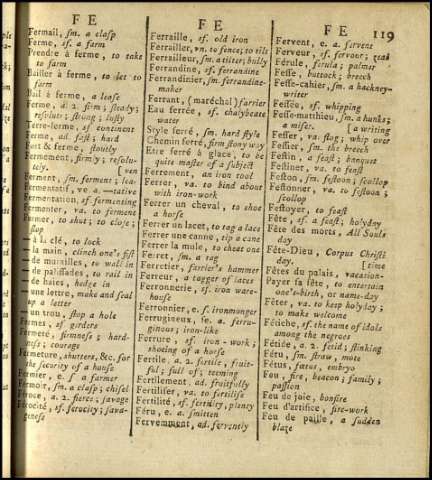 FE
FE
FE
119
Fermail, sm. a clasp
Ferme, sf. a farm
Prendre à ferme, to take
to farm
Bailler à ferme, to let to
farm
Bail à ferme, a lease
Ferme, a. 2. firm; steady;
resolute; strong; lusty
Terre-ferme, sf. continent
Ferme, ad. fast; hard
Fort & ferme, stoutly
Fermement, firmly; resolu-
tely. [ven
Ferment, sm. ferment; lea-
Fermentatif, ve a. —tative
Fermentation, sf. fermenting
Fermenter, va. to ferment
Fermer, to shut; to close;
stop
— à clé, to lock
— la main, clinch one's fist
— de murailles, to wall in
— de palissades, to rail in
— de haies, hedge in
— une lettre, make and seal
up a letter
— un trou, stop a hole
Fermes, sf. girders
Fermeté, firmness; hard-
ness; courage
Fermeture, shutters, &c. for
the security of a house
Fermier, e. s. a farmer
Fermoir, sm. a clasp; chisel
Féroce, a. 2. fierce; savage
Férocité, sf. ferocity; sava-
geness
Ferraille, sf. old iron
Ferrailler, vn. to fence; to tilt
Ferrailleur, sm. a tilter; bully
Ferrandine, sf. ferrandine
Ferrandinier, sm. ferrandine-
maker
Ferrant, (maréchal) farrier
Eau ferrée, sf. chalybeate
water
Style ferré, sm. hard style
Chemin ferré, firm stony way
Etre ferré à glace, to be
quite master of a subject
Ferrement, an iron tool
Ferrer, va. to bind about
with iron-work
Ferrer un cheval, to shoe
a horse
Ferrer un lacet, to tag a lace
Ferrer une canne, tip a cane
Ferrer la mule, to cheet one
Ferret, sm. a tag
Ferretier, farrier's hammer
Ferreur, a tagger of laces
Ferronnerie, sf. iron ware-
house
Ferronnier, e. s. ironmonger
Ferrugineux, se. a. ferru-
ginous; iron-like
Ferrure, sf. iron-work;
shoeing of a horse
Fertile, a. 2. fertile, fruit-
ful; full of; teeming
Fertilement, ad. fruitfully
Fertiliser, va. to fertilise
Fertilité, sf. fertility, plenty
Féru, e. a. smitten
Fervemment, ad. fervently
Fervent, e. a. fervent
Ferveur, sf. fervour; zeal
Férule, ferula; palmer
Fesse, buttock; breech
Fesse-cahier, sm. a hackney-
writer
Fessée, sf. whipping
Fesse-matthieu, sm. a hunks;
a miser. [a writing
Fesser, va. flog; whip over
Fessier, sm. the breech
Festin, a feast; banquet
Festiner, va. to feast
Feston, sm. festoon; scollop
Festonner, va. to festoon;
scollop
Festoyer, to feast
Fête, sf. a feast; holyday
Fête des morts, all Souls
day
Fête-Dieu, Corpus Christi
day. [time
Fêtes du palais, vacation-
Payer sa fête, to entertain
one's-birth, or name-day
Fêter, va. to keep holyday;
to make welcome
Fétiche, sf. the name of idols
among the negroes
Fétide, a. 2. fetid; stinking
Fétu, sm. straw, mote
Fétus, fœtus, embryo
Feu, fire, beacon; family;
passion
Feu de joie, bonfire
Feu d'artifice, fire-work
Feu de paille, a sudden
blaze